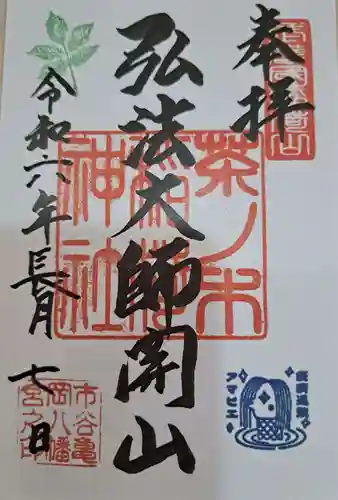 奉拝
茶ノ木
稲荷
神社
弘法大師開山
令和六年長月七日
市谷亀
岡八幡
宮之印
疫病退散
アマビエ